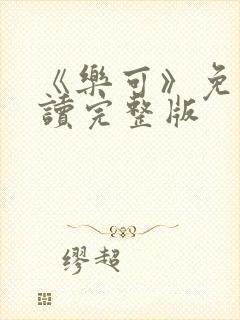 《樂可》免
讀完整版
繆超